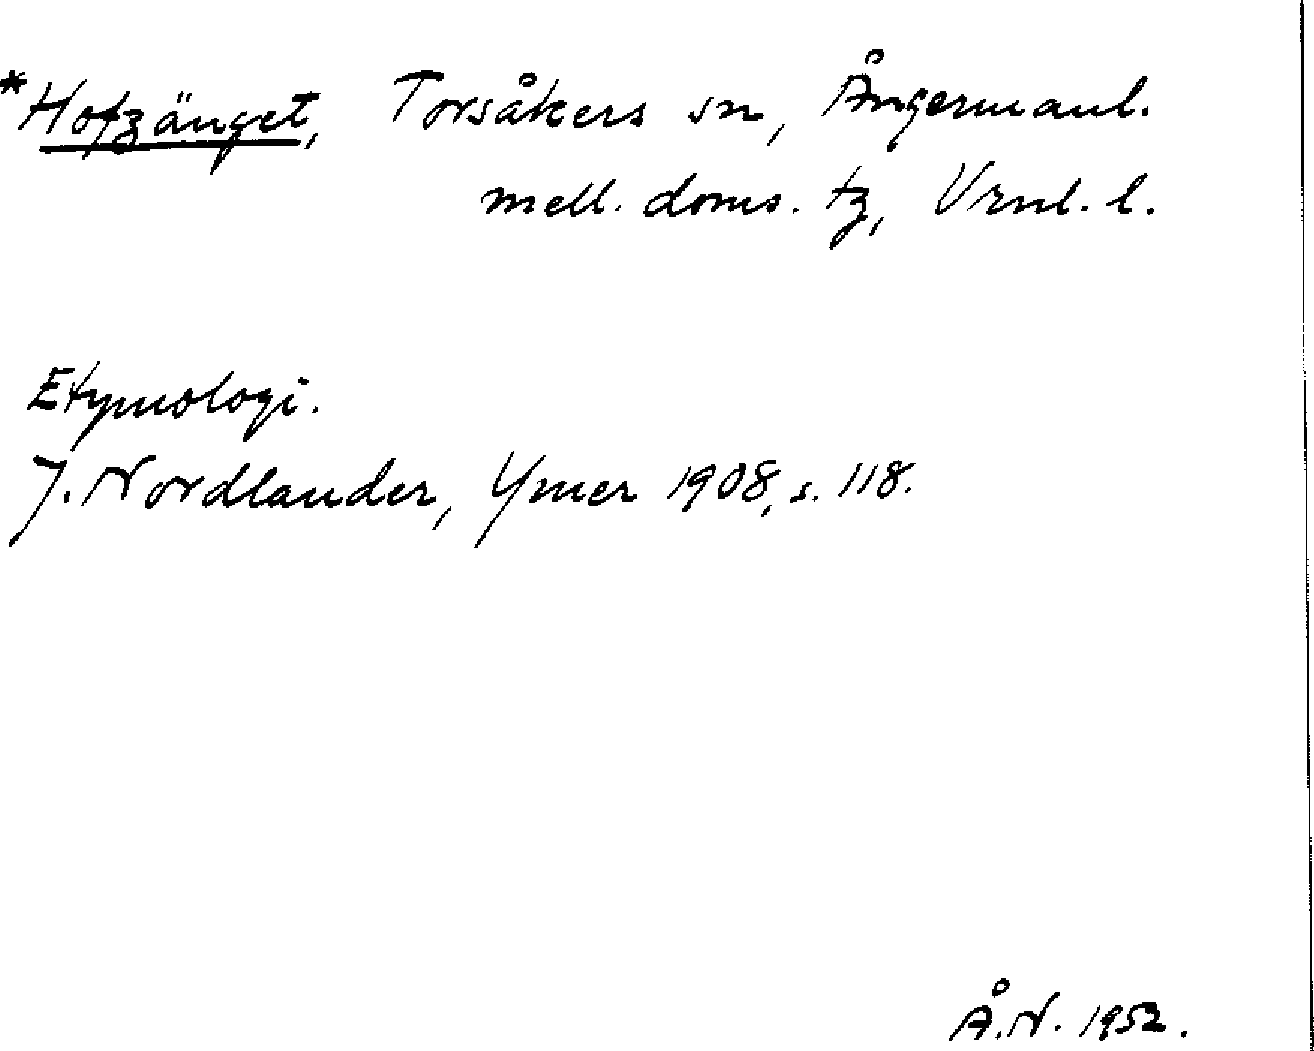 *Hofzänget, Torsåkers sn, Ångermanl.
mell. doms. tg, Vrnl. l.
Etymologi.
J. Nordlander, Ymer 1908, s. 118.
Å.N. 1952.